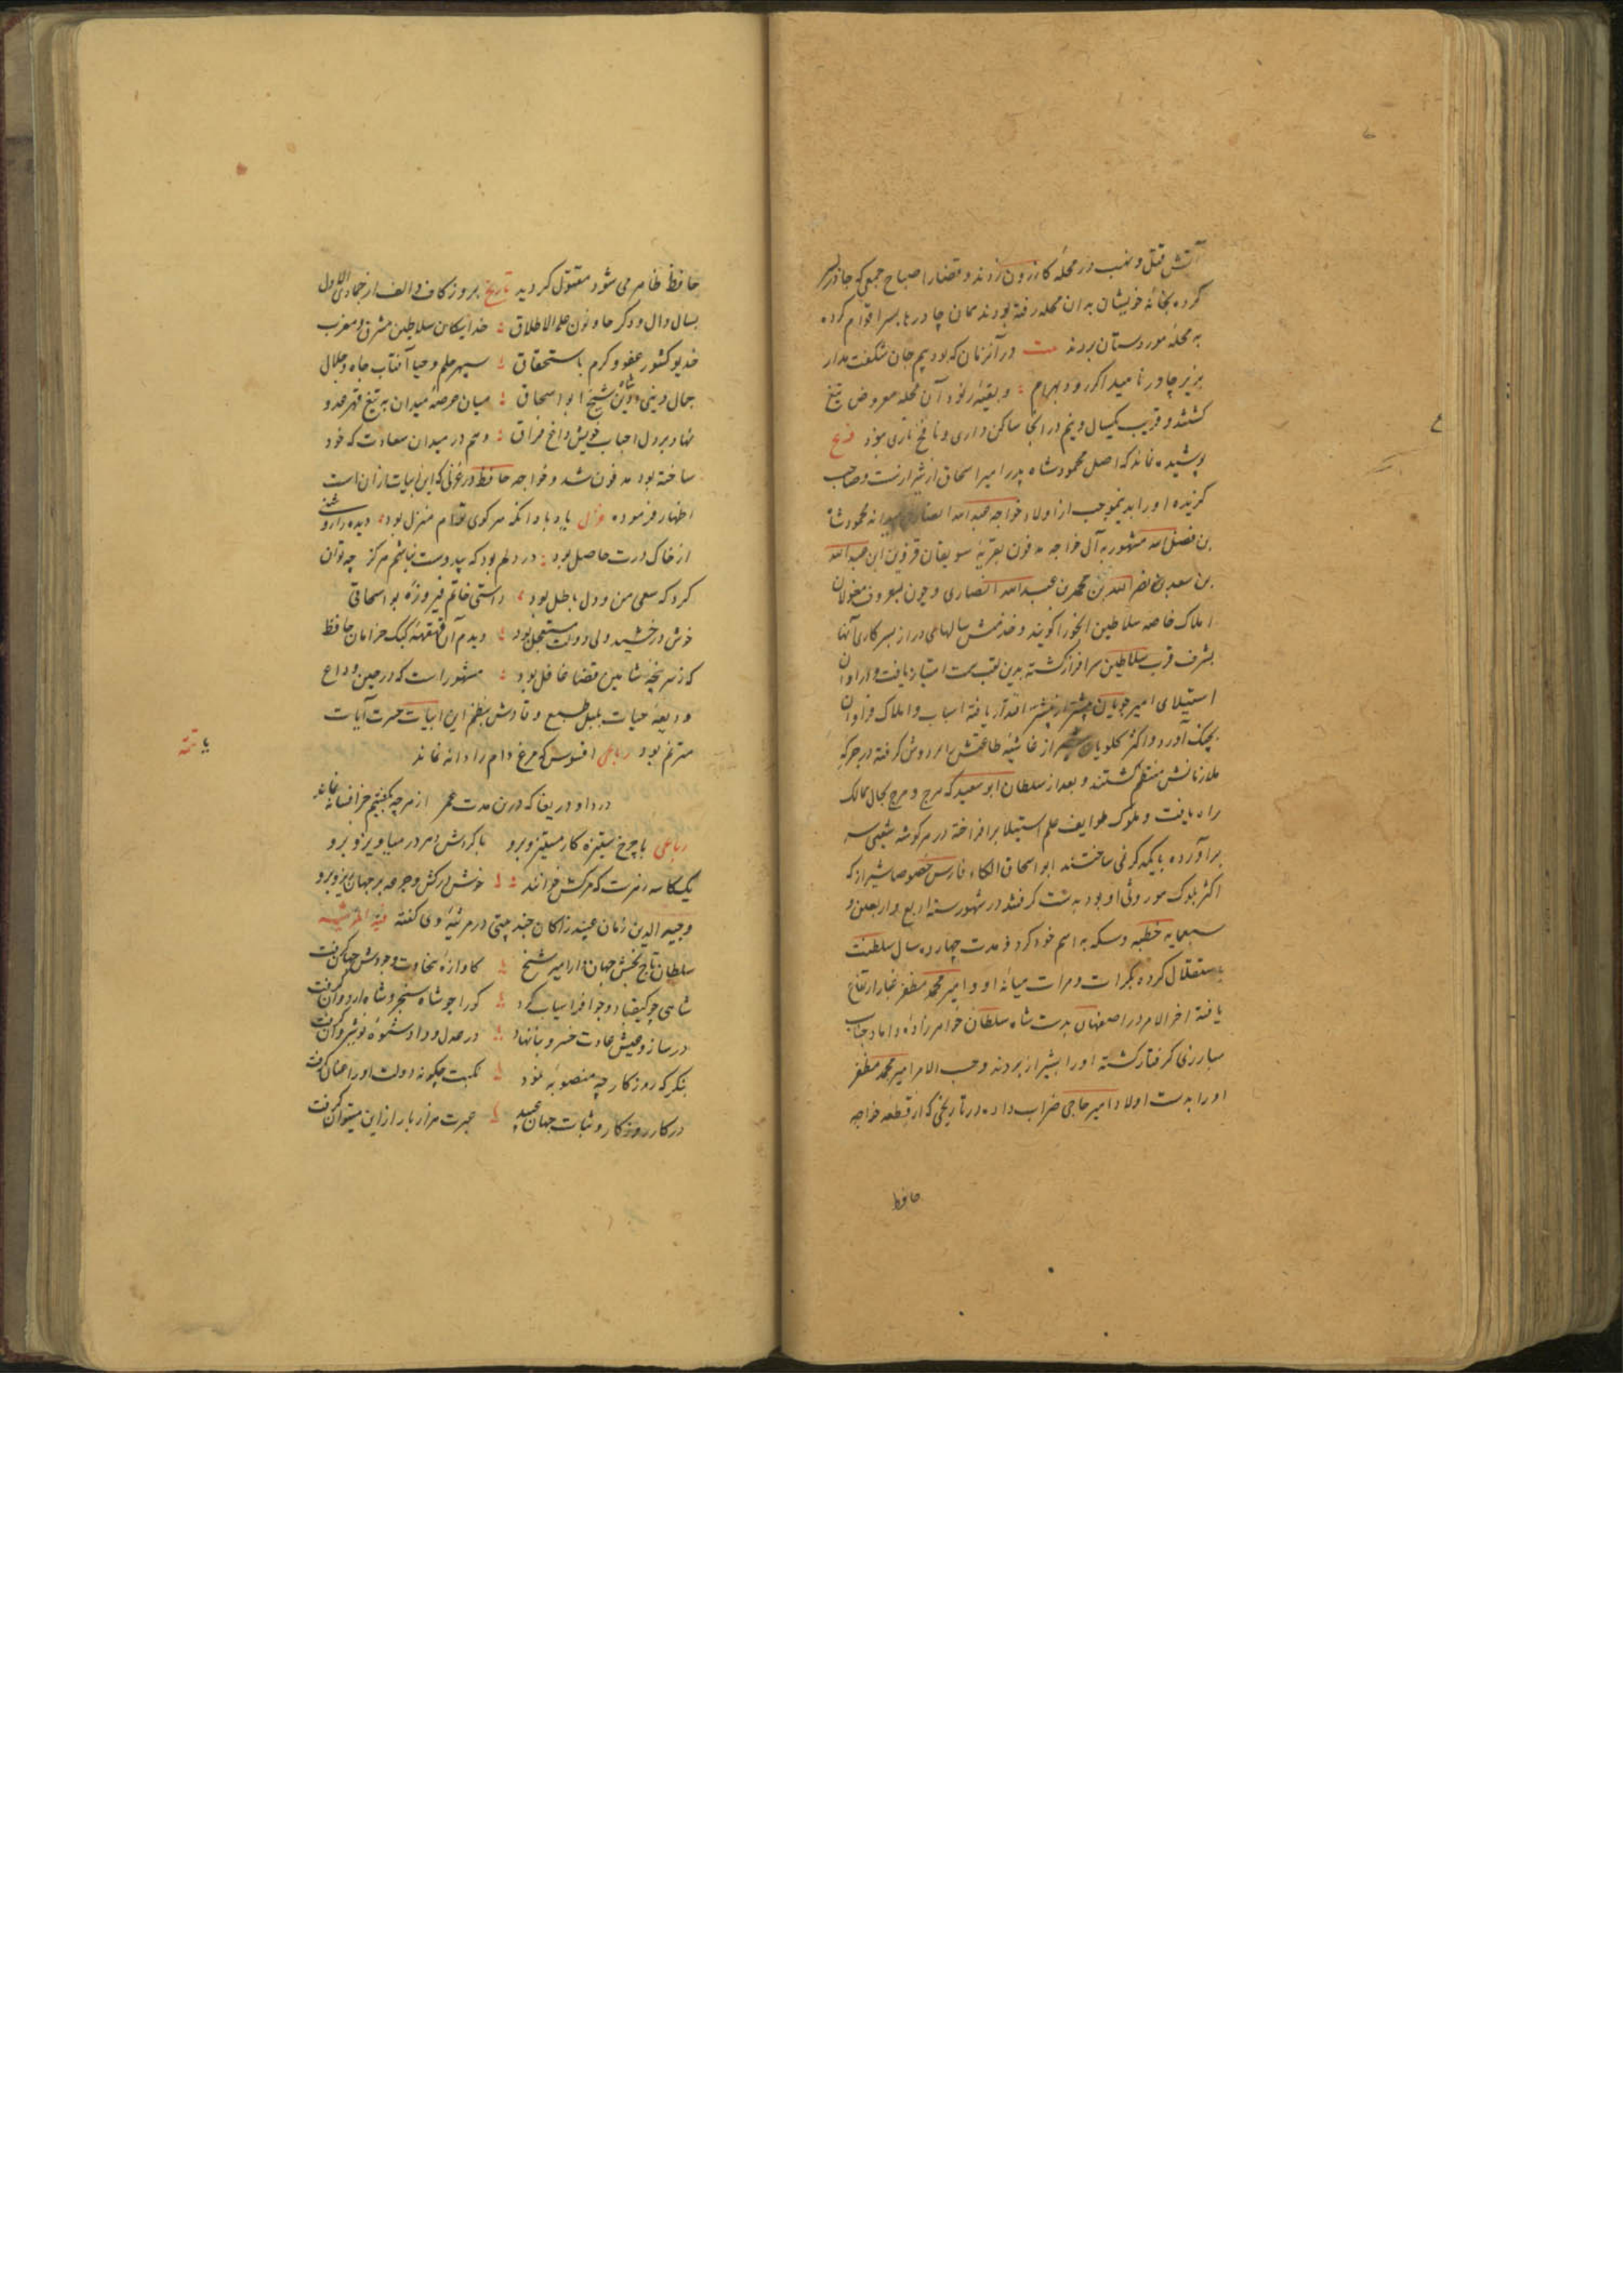 آتش قتل و نهب در محله کازرون زدند و قضارا صباح جمعی که چادر بسر
کرده بخانه خویشان به ان محله رفته بودند همان چادرها بسر اقوام کرده
به محله موردستان بردند بیت در آنزمان که بود بیم جان شکفت مدار
بزیر چادر ناهید اکر رود بهرام و بقیه آن محله معروض تیغ
کشتند و قریب یکسال و نیم در انجا ساکن داری و نافخ ناری نبود
پوشیده نماند که اصل محمود شاه پدر امیر اسحاق از شیراز نیست و صاحب
کزیده او را بدینموجب از اولاد خواجه عبدالله انصاری میداند محمود شاه
بن فضل الله مشهور به آل خواجه مدفون بقریه قزوین ابن عبدالله
بن سعد بن نصرالله بن محمد بن عبدالله انصاری و چون بعرف مغولان
املاک خاصه سلاطین انجو را کویند و خدمتش سالهای دراز بسرکاری آنها
بشرف قرب سلاطین سرافراز کشته بدین لقب سمت امتیاز یافت و در اوان
استیلای امیر چوپان بیشتر از پیشتر اقتدار یافته اسباب و املاک فراوان
بچنک آورد و اکثر کلویان شیراز غاشیه طاعتش را بر دوش کرفته در جرکه
ملازمانش منتظم کشتند و بعد از سلطان ابو سعید که هرج و مرج بحال ممالک
راه یافت و ملوک طوایف علم استیلا برافراخته در هر کوشه شعبی سر
برآورده بایکدکر نمی ساختند ابو اسحاق الکاء فارس خصوصا شیراز که
اکثر بلوک موروثی او بود بدست کرفته در شهور سنه اربع و اربعین و
سبعمایه خطبه و سکه به اسم خود کرد و مدت چهارده سال سلطنت
باستقلال کرده بکرات و مرات میانه او و امیر محمد مظفر غبار ارتفاع
یافته اخر الامر در اصفهان بدست شاه سلطان خواهرزاده و داماد جناب
مبارزی کرفتار کشته او را بشیراز بردند و حسب الامر امیر محمد مظفر
او را بدست اولاد امیر حاجی ضراب داده در تاریخی که از قطعه خواجه
حافظ
حافظ ظاهر می شود مقتول کردید تاریخ بروز کاف و الف از جمادی الاول
بسال ذال و دکر حا و نون علی الاطلاق خدایکان سلاطین مشرق و مغرب
خدیو کشور عفو و کرم باستحقاق سپهر حلم و حیا آفتاب جاه و جلال
جمال دینی و دین شاه شیخ ابو اسحاق میان عرصه میدان به تیغ قهر عدو
نهاد بر دل احباب خویش داغ فراق و هم در میدان سعادت که خود
ساخته بود مدفون شد و خواجه حافظ در غزلی که این ابیات از ان است
اظهار فرموده غزل یاد باد انکه سر کوی توام منزل بود دیده را روشنی
از خاک درت حاصل بود در دلم بود که بی دوست نباشم هرکز چه توان
کرد که سعی من و دل باطل بود راستی خاتم فیروزه بو اسحاقی
خوش درخشید ولی دولت مستعجل بود دیدم آن قهقهه کبک خرامان حافظ
که ز سر پنجه شاهین قضا غافل بود مشهور است که در حین وداع
ودیعه حیات بلبل طبع وقادش بنظم این ابیات حسرت آیات
مترنم بود رباعی افسوس که مرغ دام را دانه نماند
دردا و دریغا که درین مدت عمر از هر چه بکفتیم جز افسانه نماند
رباعی با چرخ ستیزه کار مستیز و برو با کردش دهر در میاویز و برو
یک کاسه زهرست که مرکش خوانند خوش درکش و جرعه بر جهان ریز و برو
وجیه الدین زمان عبید زاکان چند بیتی در مرثیه وی کفته
سلطان تاج بخش جهاندار امیر شیخ کاوازه سخاوت و جودش جهان کرفت
شاهی چو کیقباد و چو افراسیاب کرد کورا چو شاه سنجر و شاه اردوان کرفت
در ساز و عیش عادت خسرو بنا نهاد در عدل و داد شیوه نوشیروان کرفت
بنکر که روزکار چه منصوبه نمود نکبت چکونه دولت او را عنان کرفت
در کار روزکار و ثبات جهان عبید عبرت هزار بار از این میتوان کرفت